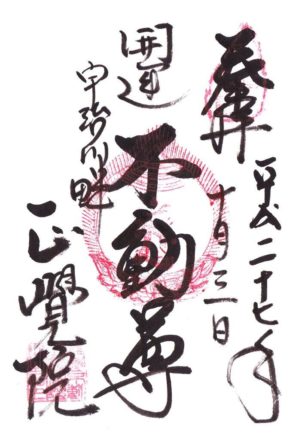 奉拝
平成二十七年
十月三日
開運
不動尊
宇治川畔
正覚院